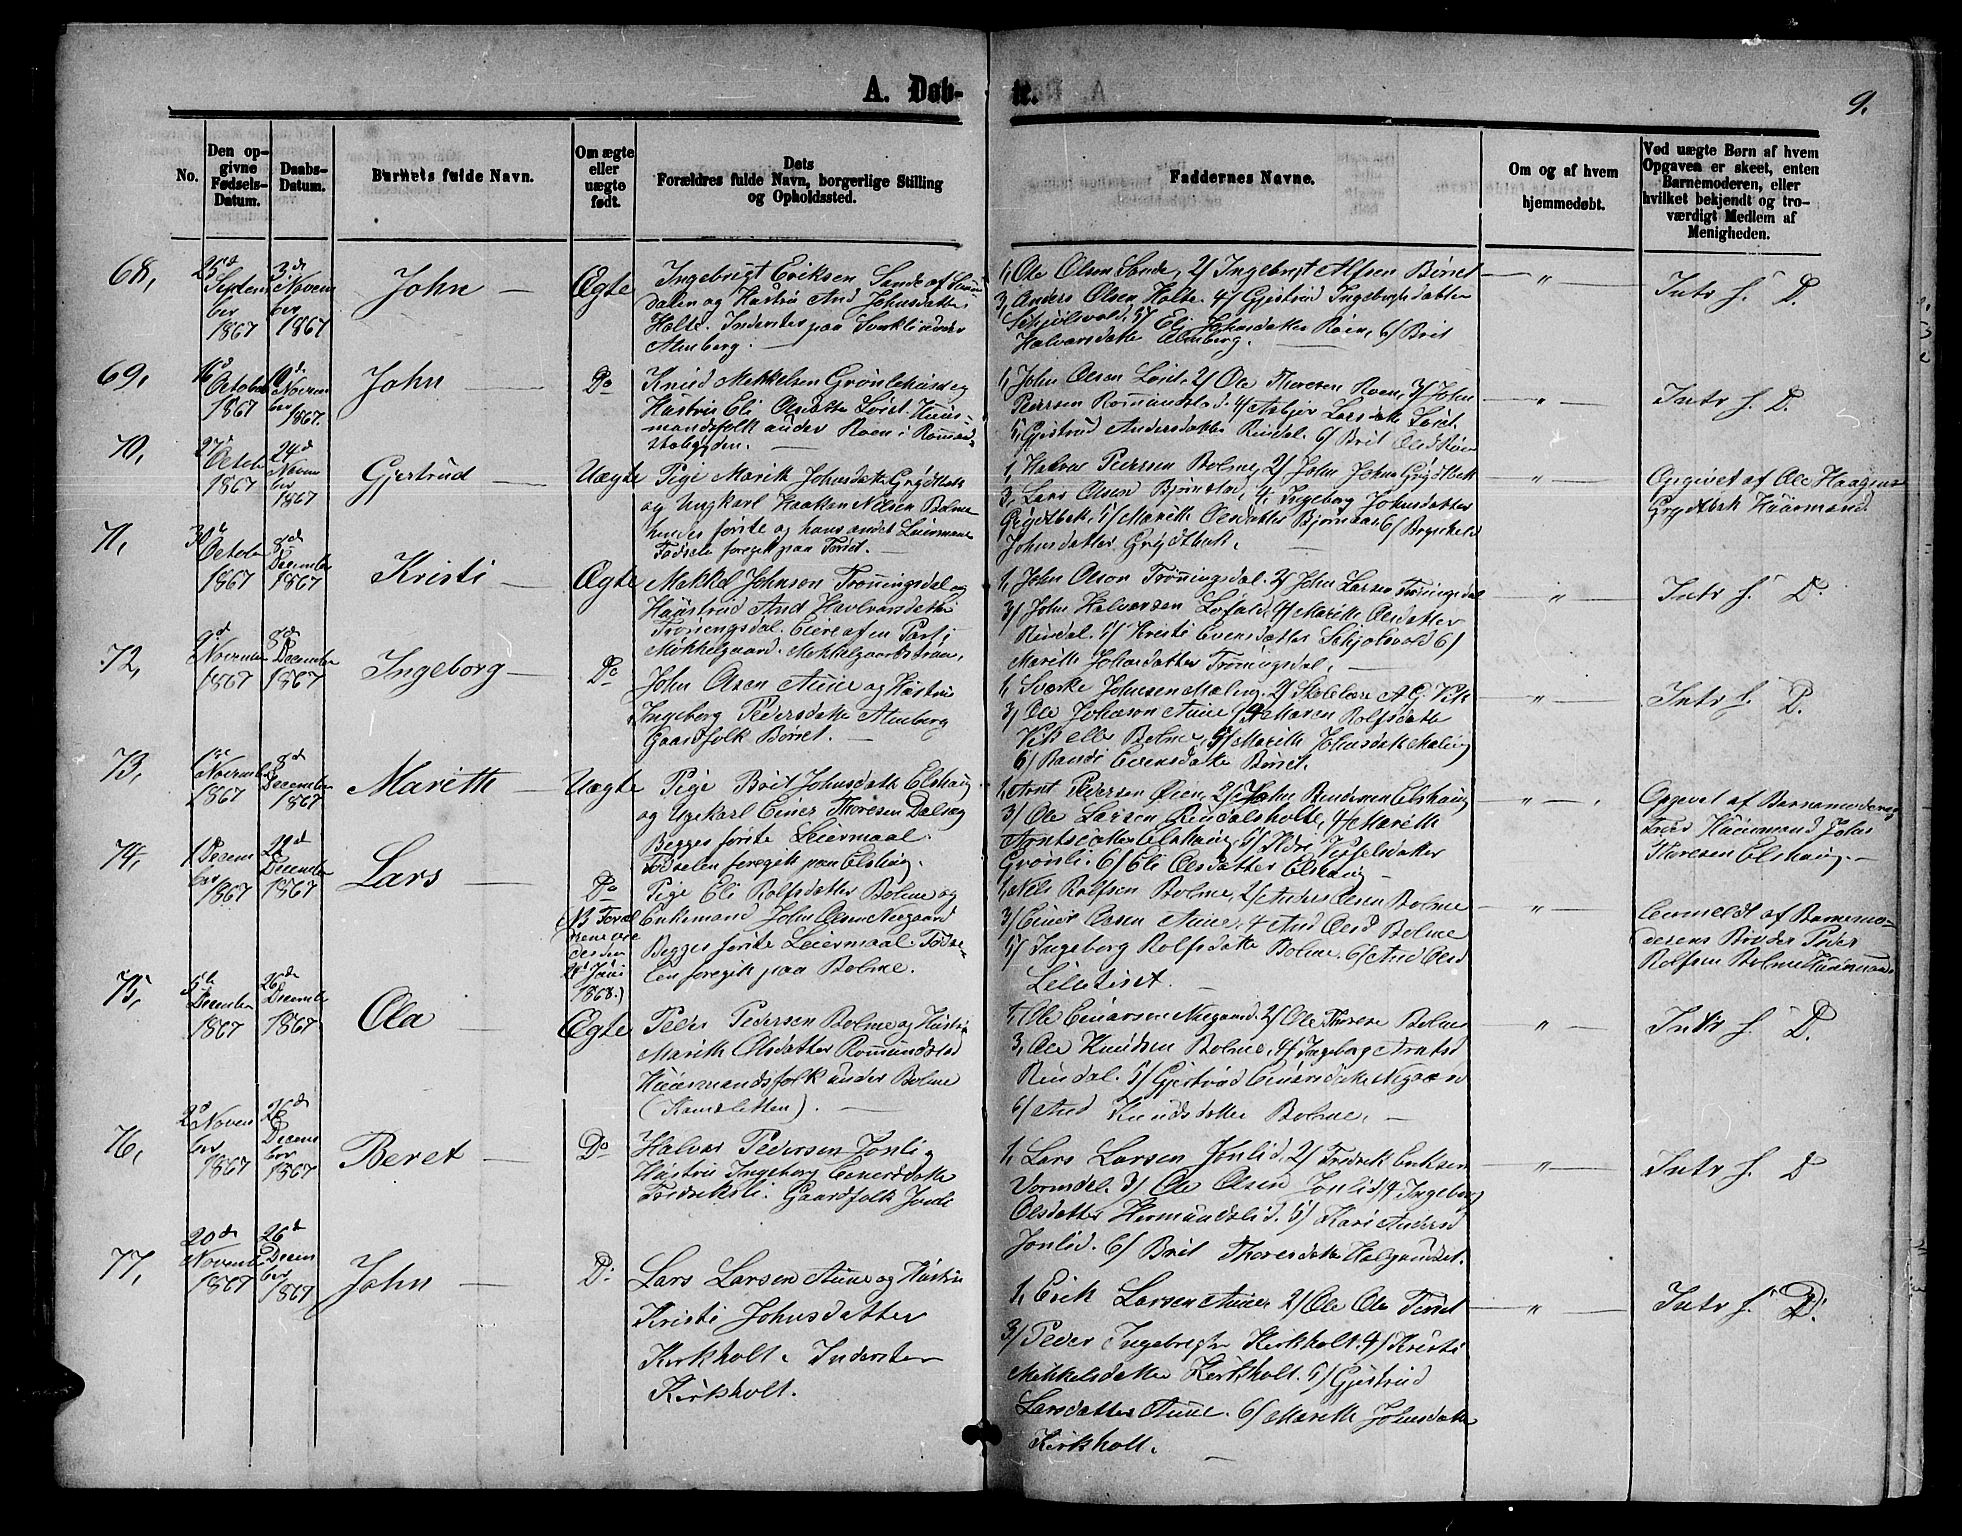 A. Døb-
te.
9.
No.
Den op-
givne
Fødsels-
Datum.
Daabs-
Datum.
Barnets fulde Navn.
Om ægte
eller
uægte
født.
Dets
Forældres fulde Navn, borgerlige Stilling
og Opholdssted.
Faddernes Navne.
Om og af hvem
hjemmedøbt.
Ved uægte Børn af hvem
Opgaven er skeet, enten
Barnemoderen, eller
hvilket bekjendt og tro-
værdigt Medlem af
Menigheden.
68,
25de
Septem
ber
1867
3de
Novem
ber
1867
John —
Ægte
Ingebrigt Eriksen Sande af
dalen og Hustru And Johnsdatter
Holte. Inderster paa
Almberg. —
1, Ole Olsen Sande, 2/ Ingebrigt Alfsen Børset
3, Anders Olsen Holte. 4/ Gjertrud Ingebrigtsdatter
Schjølsvold, 5/ Eli Johnsdatter Roen, 6/ Brit
Halvarsdatter Almberg. —
— " —
Intr f. D.
69,
16d
Octob
1867
10de
Novem
ber
1867.
John —
Do
Knud Mekkelsen Grønlihus og
Hustru Eli Olsdatter Løset. Huus-
mandsfolk under Roen i Romund-
stabygden. —
1, John Olsen Løset. 2/ Ole Thoresen Roen, 3/ John
Pedersen Romundstad. 4/ Asbjør Larsdatter Løset.
5, Gjertrud Andersdatter Rindal. 6/ Brit Olsd Roen
— " —
Intr f. D.
70,
27d
Octob
1867
24d
Novem
ber
1867
Gjertrud —
Uægte
Pige Marith Johnsdatter Grytbak
og Ungkarl Haaken Nilsen Bolme
hendes første og hans andet Leiermaal
Fødsele foregik paa Torset. —
1, Halvar Pedersen Bolme, 2/ John Johns Grytbak
3, Lars Olsen Bjørnstad, 4, Ingeborg Johnsdatter
Grytbak, 5/ Marith Olsdatter Bjørnaas 6/
Johnsdatter Grytbak.
— " —
Opgivet af Ole Haagens
Grytbak Huusmand
71,
30d
Octob
1867
8de
December
1867
Kristi —
Ægte
Mekkel Johnsen Trønningsdal og
Hustrud And Havlvarsdatter
Trønningsdal. Eiere af en Part i
Møkkelgaard. Mekkelgaardstraa.
1, John Olson Trønningsdal. 2/ John Larsen Trøningsdal
3/ John Halvarsen Lofald, 4/ Marith Olsdatter
Rindal. 5/ Kristi Evensdatter Schjølsvold 6/
Marith Johnsdatter Trøningsdal. —
— " —
Intr f. D.
72,
9d
November
1867
8de
December
1867
Ingeborg —
Do
John Olsen Aune og Hustru
Ingeborg Pedersdatter Almberg
Gaardfolk Børset. —
1, Sverke Johnsen Mæling. 2/ Skolelære A. G. Vik
3/ Ole Johnson Aune 4/ Maren Rolfsdatter
Vik eller Bolme, 5/ Marith Johnsdatter Mæling
6/ Randi Evensdatter Børset.
— " —
Intr f. D.
73,
1ste
November
1867
8de
December
1867
Marith —
Uægte
Pige Brit Johnsdatter Elshaug
og Ungkarl Einer Thoresen Dalsæg
Begges første Leiermaal.
Fødselen foregik paa Elshaug.
1, Arnt Pedersen Øien, 2/ John Elshaug
3/ Ole Larsen Rindalsholte, 4/ Marith
Arntsdatter Elshaug, 5/
Grønli. 6/ Eli Olsdatter Elshaug
— " —
Opgevet af Barnemoderens
Fader Huusmand John
Thoresen Elshaug. —
74,
1 Decem
ber
1867
22d
December
1867
Lars —
Do
(NB Foræl
drene
1868.)
Pige Eli Rolfsdatter Bolme og
Enkemand John Olsen Negaard
Begges første Leiermaal. Fødse-
len foregik paa Bolme.
1, Nils Rolfsen Bolme, 2/ Anders Olsen Bolme
3/ Einar Olsen Aune, 4 And Olsd Bolme
5/ Ingeborg Rolfsdatter Bolme. 6/ And Olsd
— " —
Anmeldt af Barnemo-
derens Broder Peder
Rolfsen Bolme Huusmand
75,
5te
December
1867
26de
December
1867
Ola —
Ægte
Peder Pedersen Bolme og Hustru
Marith Olsdatter Romundstad
Huusmandsfolk under Bolme
(Kamsletten). —
1, Ole Einarsen Negaard. 2/ Ole Thorese Bolme
3, Ole Knudsen Bolme, 4/ Ingeborg Arntsd
Rindal. 5/ Gjertrud Einarsdatter Negaard
6/ And Knudsdatter Bolme, —
— " —
Intr f. D.
76,
2d
Novem
ber
1867
26de
Decem
ber
1867
Beret —
Do
Halvar Pedersen Jonli og
Hustru Ingeborg Einersdatter
Fredriksli. Gaardfolk Jonli
1, Lars Larsen Jonlid, 2/ Fredrik Eriksen
Vormdal. 3/ Ole Olsen Jonlid 4, Ingeborg
Olsdatter Hermundslid. 5/ Kari Andersd
Jonlid. 6/ Brit Thoresdatter Halgundset.
— " —
Intr f. D
77,
20de
Novemb
1867
26de
Decem
ber
1867
John —
Do
Lars Larsen Aune og Hustru
Kristi Johnsdatter
Kirkholt. Inderster
Kirkholt.
1, Erik Larsen Aune 2/ Ole Ols Torset
3/ Peder Ingebrigtsen Kirkholt. 4/ Kristi
Mekkelsdatter Kirkholt. 5/ Gjertrud
Larsdatter Aune. 6/ Marith Johnsdatter
Kirkholt. —
— " —
Intr f. D.